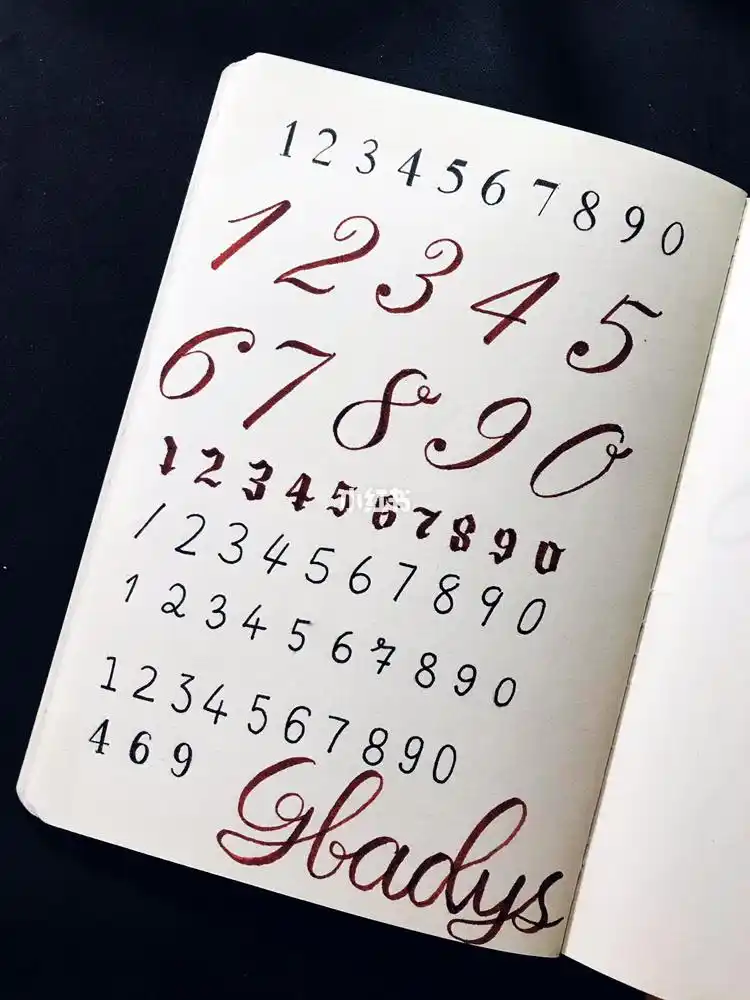 1 2 3 4 5 6 7 8 9 0
1 2 3 4 5
6 7 8 9 0
1 2 3 4 5 6 7 8 9 0
小红书
1 2 3 4 5 6 7 8 9 0
1 2 3 4 5 6 7 8 9 0
1 2 3 4 5 6 7 8 9 0
4 6 9
Gladys